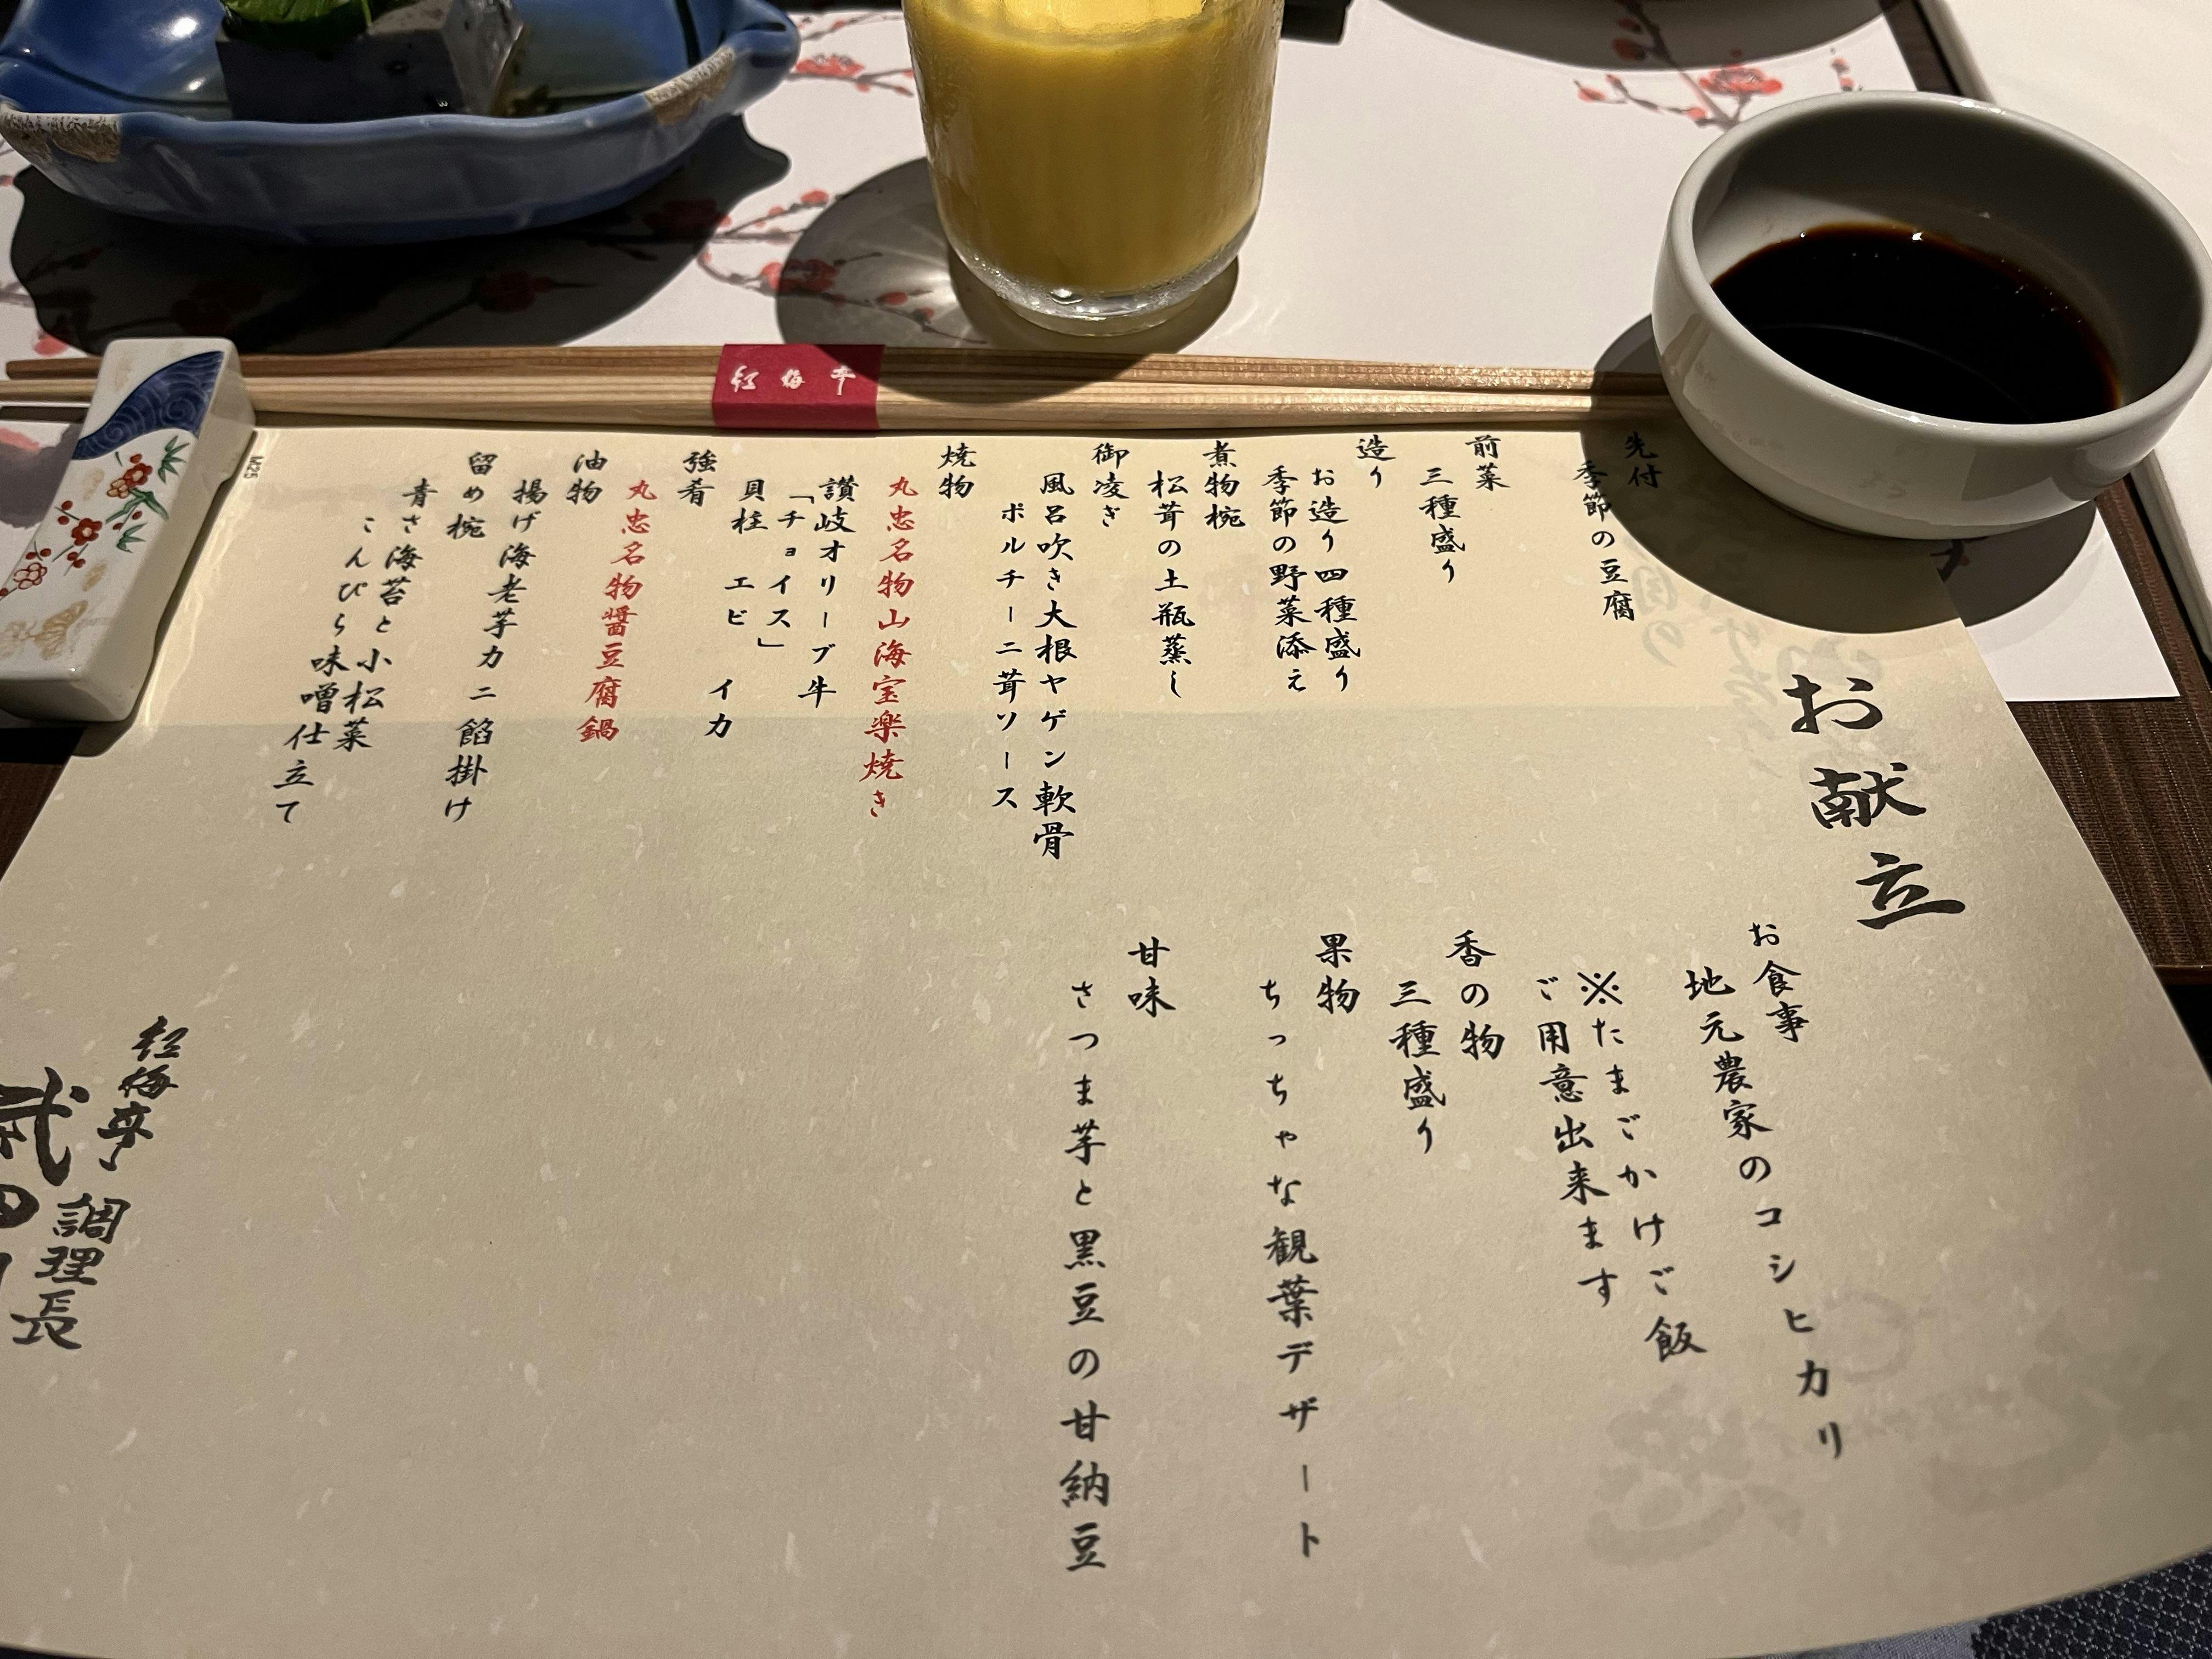 紅梅亭
お献立
先付
季節の豆腐
前菜
三種盛り
造り
お造り四種盛り
季節の野菜添え
煮物椀
松茸の土瓶蒸し
御凌ぎ
風呂吹き大根ヤゲン軟骨
ポルチーニ茸ソース
焼物
丸忠名物山海宝楽焼き
讃岐オリーブ牛
「チョイス」
貝柱 エビ イカ
強肴
丸忠名物醤豆腐鍋
油物
揚げ海老芋カニ餡掛け
留め椀
青さ海苔と小松菜
こんぴら味噌仕立て
お食事
地元農家のコシヒカリ
※たまごかけご飯
ご用意出来ます
香の物
三種盛り
果物
ちっちゃな観葉デザート
甘味
さつま芋と黒豆の甘納豆
紅梅亭 調理長